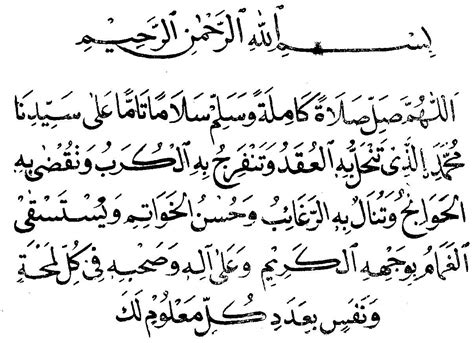 بِسْمِ اللهِ الرَّحْمٰنِ الرَّحِيْمِ
اَللّٰهُمَّ صَلِّ صَلَاةً كَامِلَةً وَسَلِّمْ سَلَامًا تَامًّا عَلَى سَيِّدِنَا
مُحَمَّدٍ الَّذِى تَنْحَلُّ بِهِ الْعُقَدُ وَتَنْفَرِجُ بِهِ الْكُرَبُ وَتُقْضٰى بِهِ
الْحَوَائِجُ وَتُنَالُ بِهِ الرَّغَائِبُ وَحُسْنُ الْخَوَاتِمِ وَيُسْتَسْقَى
الْغَمَامُ بِوَجْهِهِ الْكَرِيْمِ وَعَلَى آلِهِ وَصَحْبِهِ فِى كُلِّ لَمْحَةٍ
وَنَفَسٍ بِعَدَدِ كُلِّ مَعْلُوْمٍ لَكَ